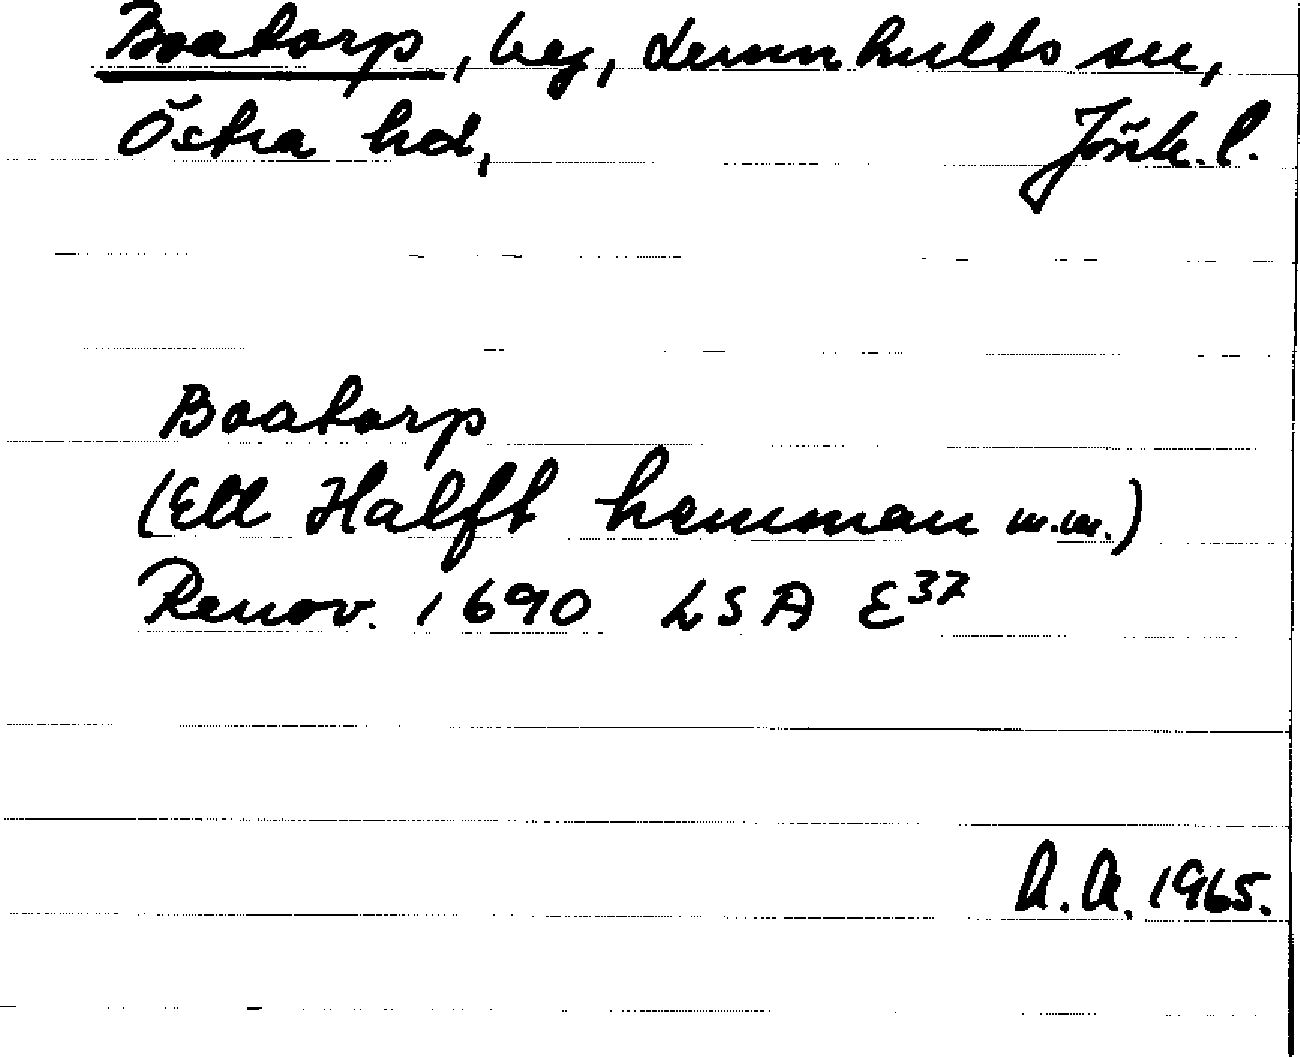 Boatorp, beg, Lemnhults sn,
Östra hd, Jönk. l.
Boatorp
(Ett Halft hemman m.m.)
Renov. 1690 LSA E37
A.A. 1965.